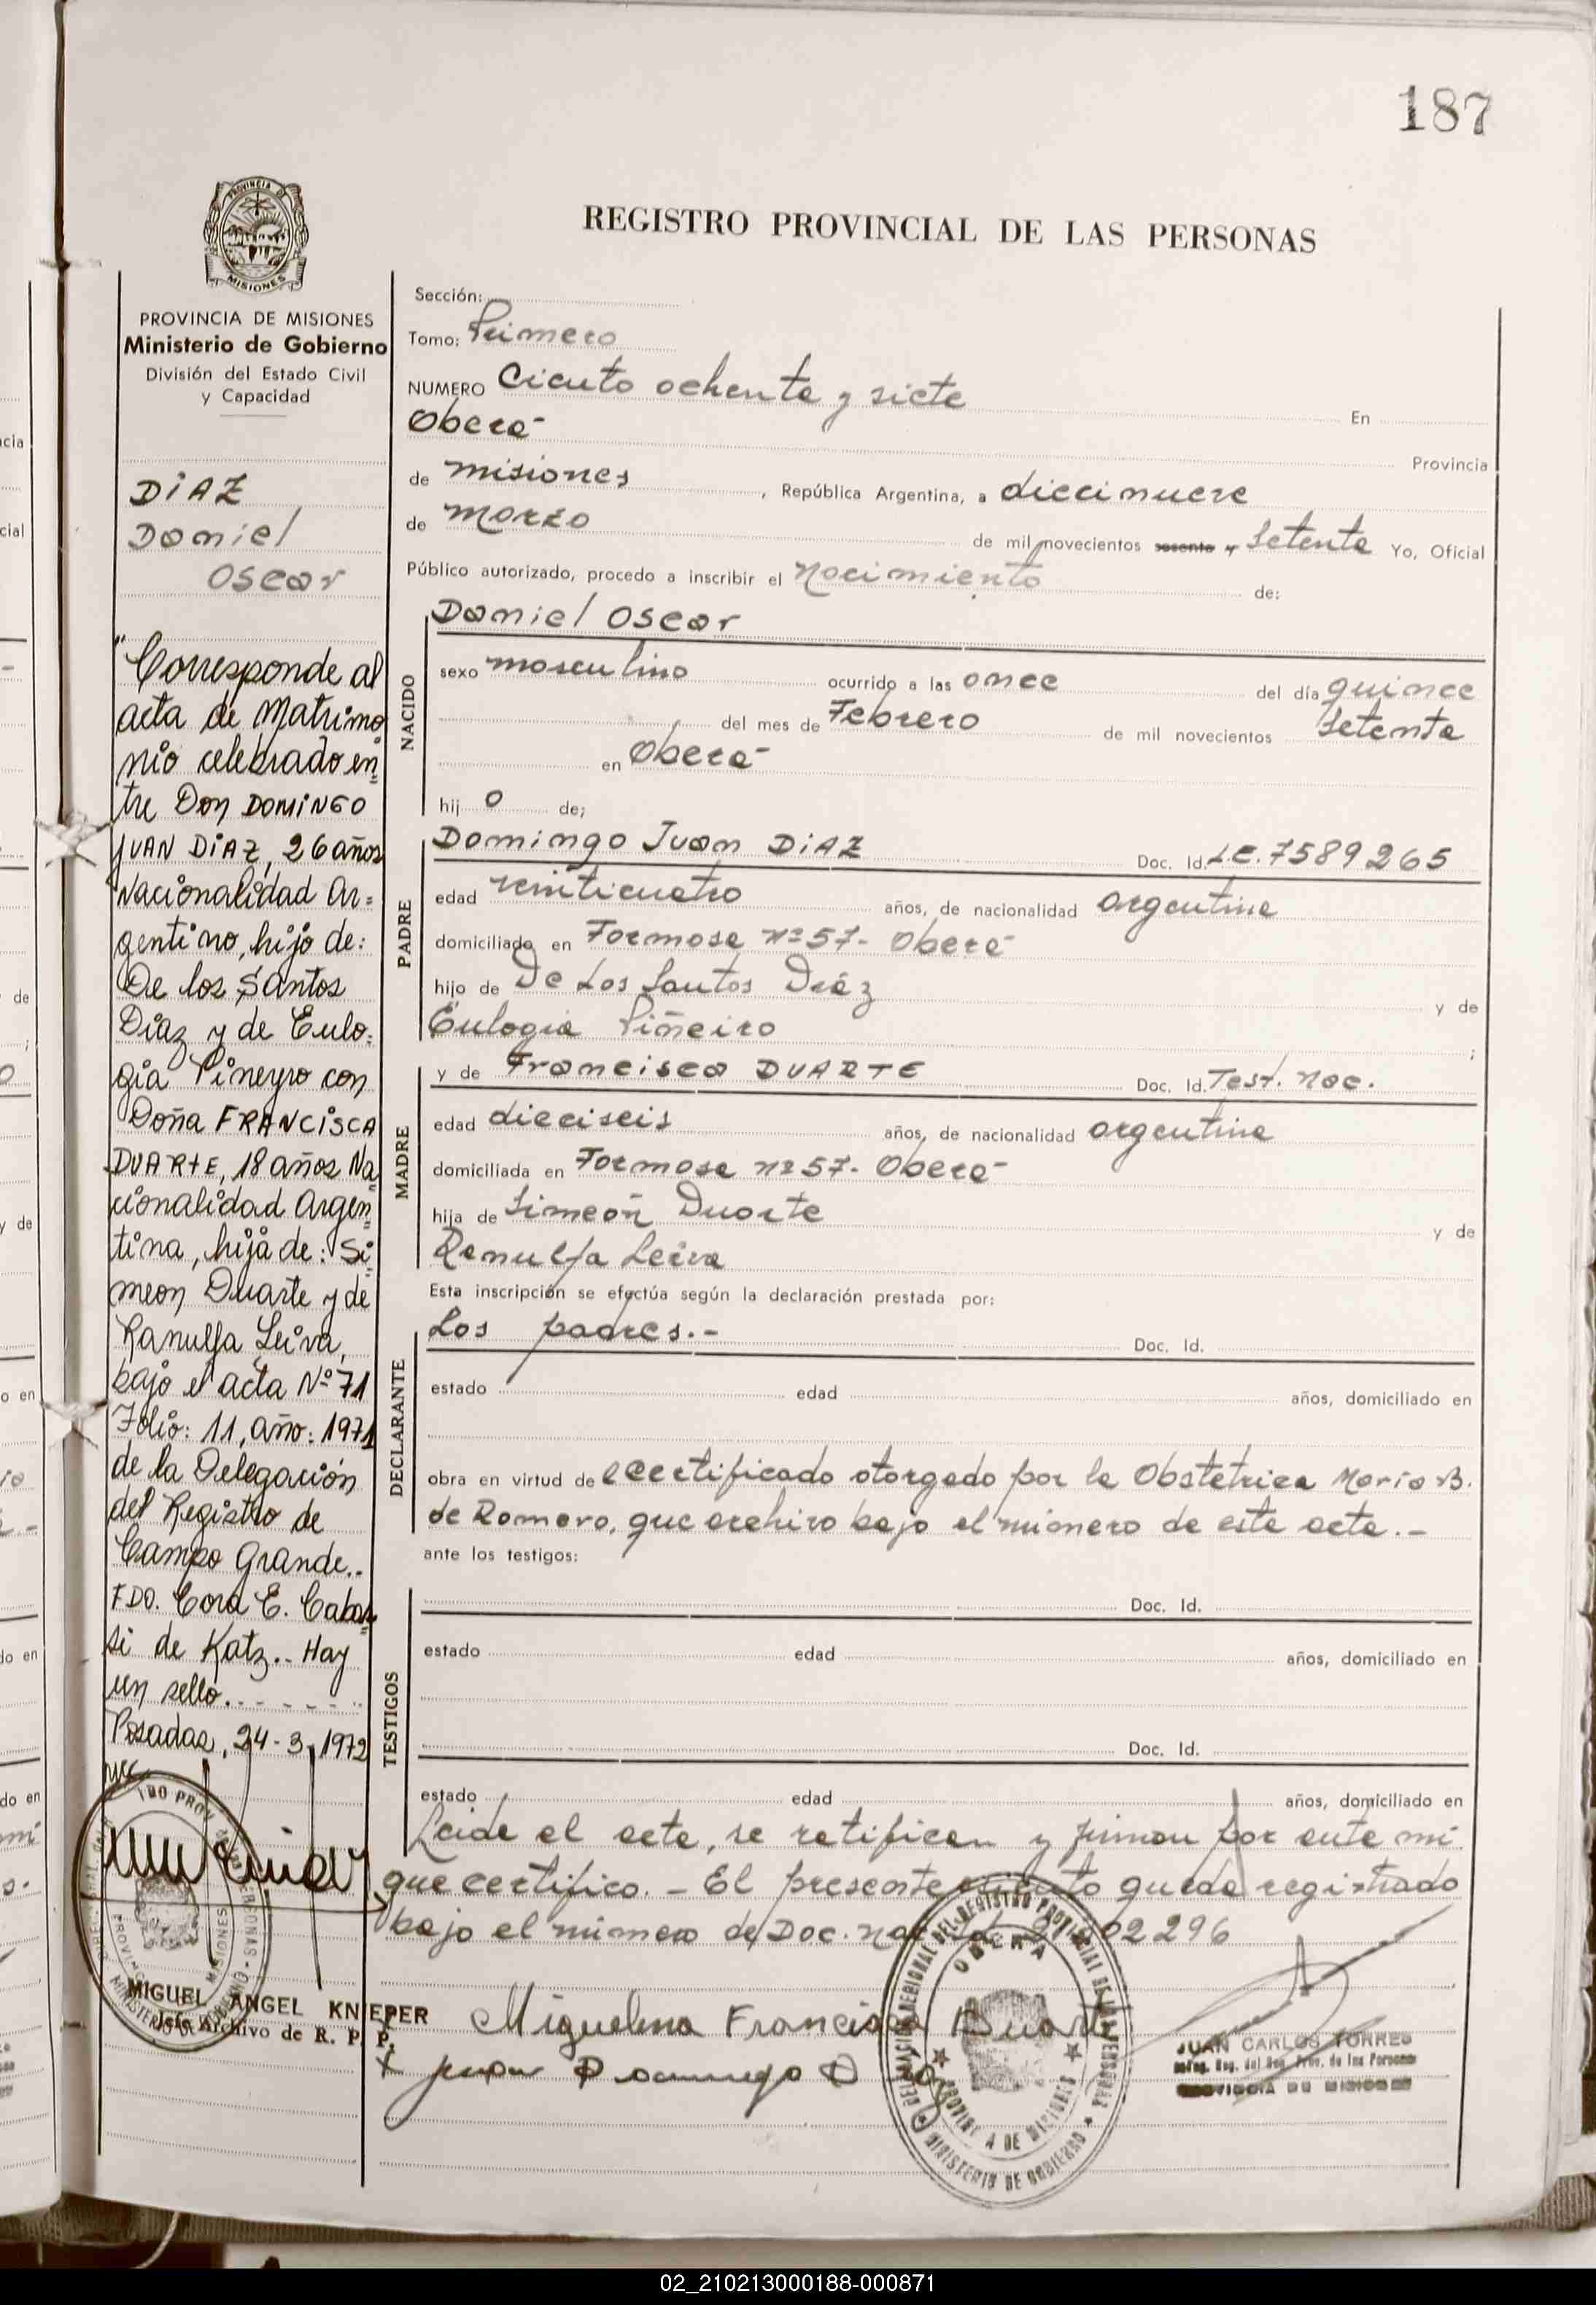 187
PROVINCIA DE
MISIONES
REGISTRO PROVINCIAL DE LAS PERSONAS
PROVINCIA DE MISIONES
Ministerio de Gobierno
División del Estado Civil
y Capacidad
DiAZ
Daniel
Oscar
"Corresponde al
acta de Matrimo
nio celebrado en
tre Don DOMiNGO
JUAN DiAZ, 26 años
Nacionalidad Ar=
gentino, hijo de:
De los Santos
Díaz y de Eulo=
gia Pineyro con
Doña FRANCiSCA
DUARTE, 18 años Na
cionalidad Argen
tina, hija de: Si
meon Duarte y de
Ranulfa Leiva,
bajo el acta Nº 71
Folio: 11, año: 1971
de la Delegación
del Registro de
Campo Grande..
FDO. Cora E.
de Katz.. Hay
un sello.
Posadas, 24-3-1972
MIGUEL ANGEL KNIEPER
Jefe Archivo de R. P. P.
Sección:
Tomo: Primero
NUMERO Ciento ochenta y siete En
Oberá Provincia
de Misiones, República Argentina, a diecinueve
de Marzo de mil novecientos sesenta y Setenta Yo, Oficial
Público autorizado, procedo a inscribir el Nacimiento de:
NACIDO
Daniel Oscar
sexo masculino ocurrido a las once del día quince
del mes de Febrero de mil novecientos Setenta
en Oberá
hij o de;
PADRE
Domingo Juan DiAZ Doc. Id. L.E. 7589265
edad veinticuatro años, de nacionalidad argentina
domiciliado en Formosa nº 57- Oberá
hijo de De Los Santos Díaz y de
Eulogia Piñeiro ;
MADRE
y de Francisca DUARTE Doc. Id. Test. Nac.
edad dieciseis años, de nacionalidad argentina
domiciliada en Formosa nº 57- Oberá
hija de Simeón Duarte y de
Ranulfa Leiva
Esta inscripción se efectúa según la declaración prestada por:
DECLARANTE
Los padres.- Doc. Id.
estado edad años, domiciliado en
obra en virtud de certificado otorgado por la Obstétrica María B.
de Romero, que archivo bajo el número de este acta.-
ante los testigos:
TESTIGOS
Doc. Id.
estado edad años, domiciliado en
Doc. Id.
estado edad años, domiciliado en
Leída el acta, se ratifican y firman por ante mí
que certifico. - El presente queda registrado
bajo el número de Doc. Nac. 02296
Miguelina Francisca Duarte
x Juan Domingo D
DELEGACION REGIONAL DEL REGISTRO PROVINCIAL DE LAS PERSONAS
OBERA
PROVINCIA DE MISIONES
MINISTERIO DE GOBIERNO
JUAN CARLOS TORRES
Prov. de las Personas
PROVINCIA DE MISIONES
cia
cial
de
y de
o en
do en
do en
02_210213000188-000871